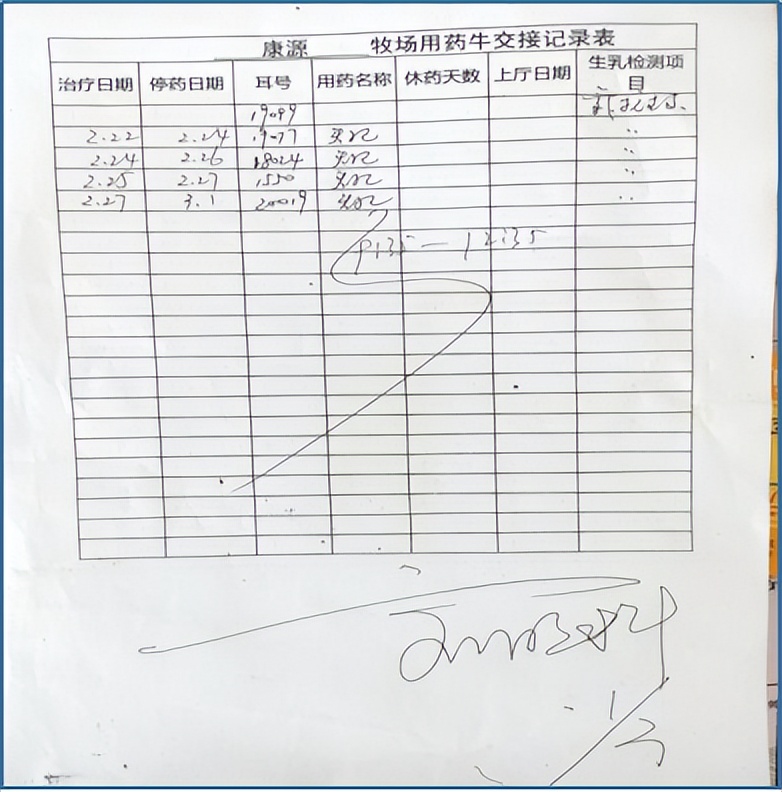 康源 牧场用药牛交接记录表
治疗日期 停药日期 耳号 用药名称 休药天数 上厅日期 生乳检测项目
19099
2.22 2.24 19077
2.24 2.26 18024
2.25 2.27 1550
2.27 3.1 20019
9:35 — 12:35